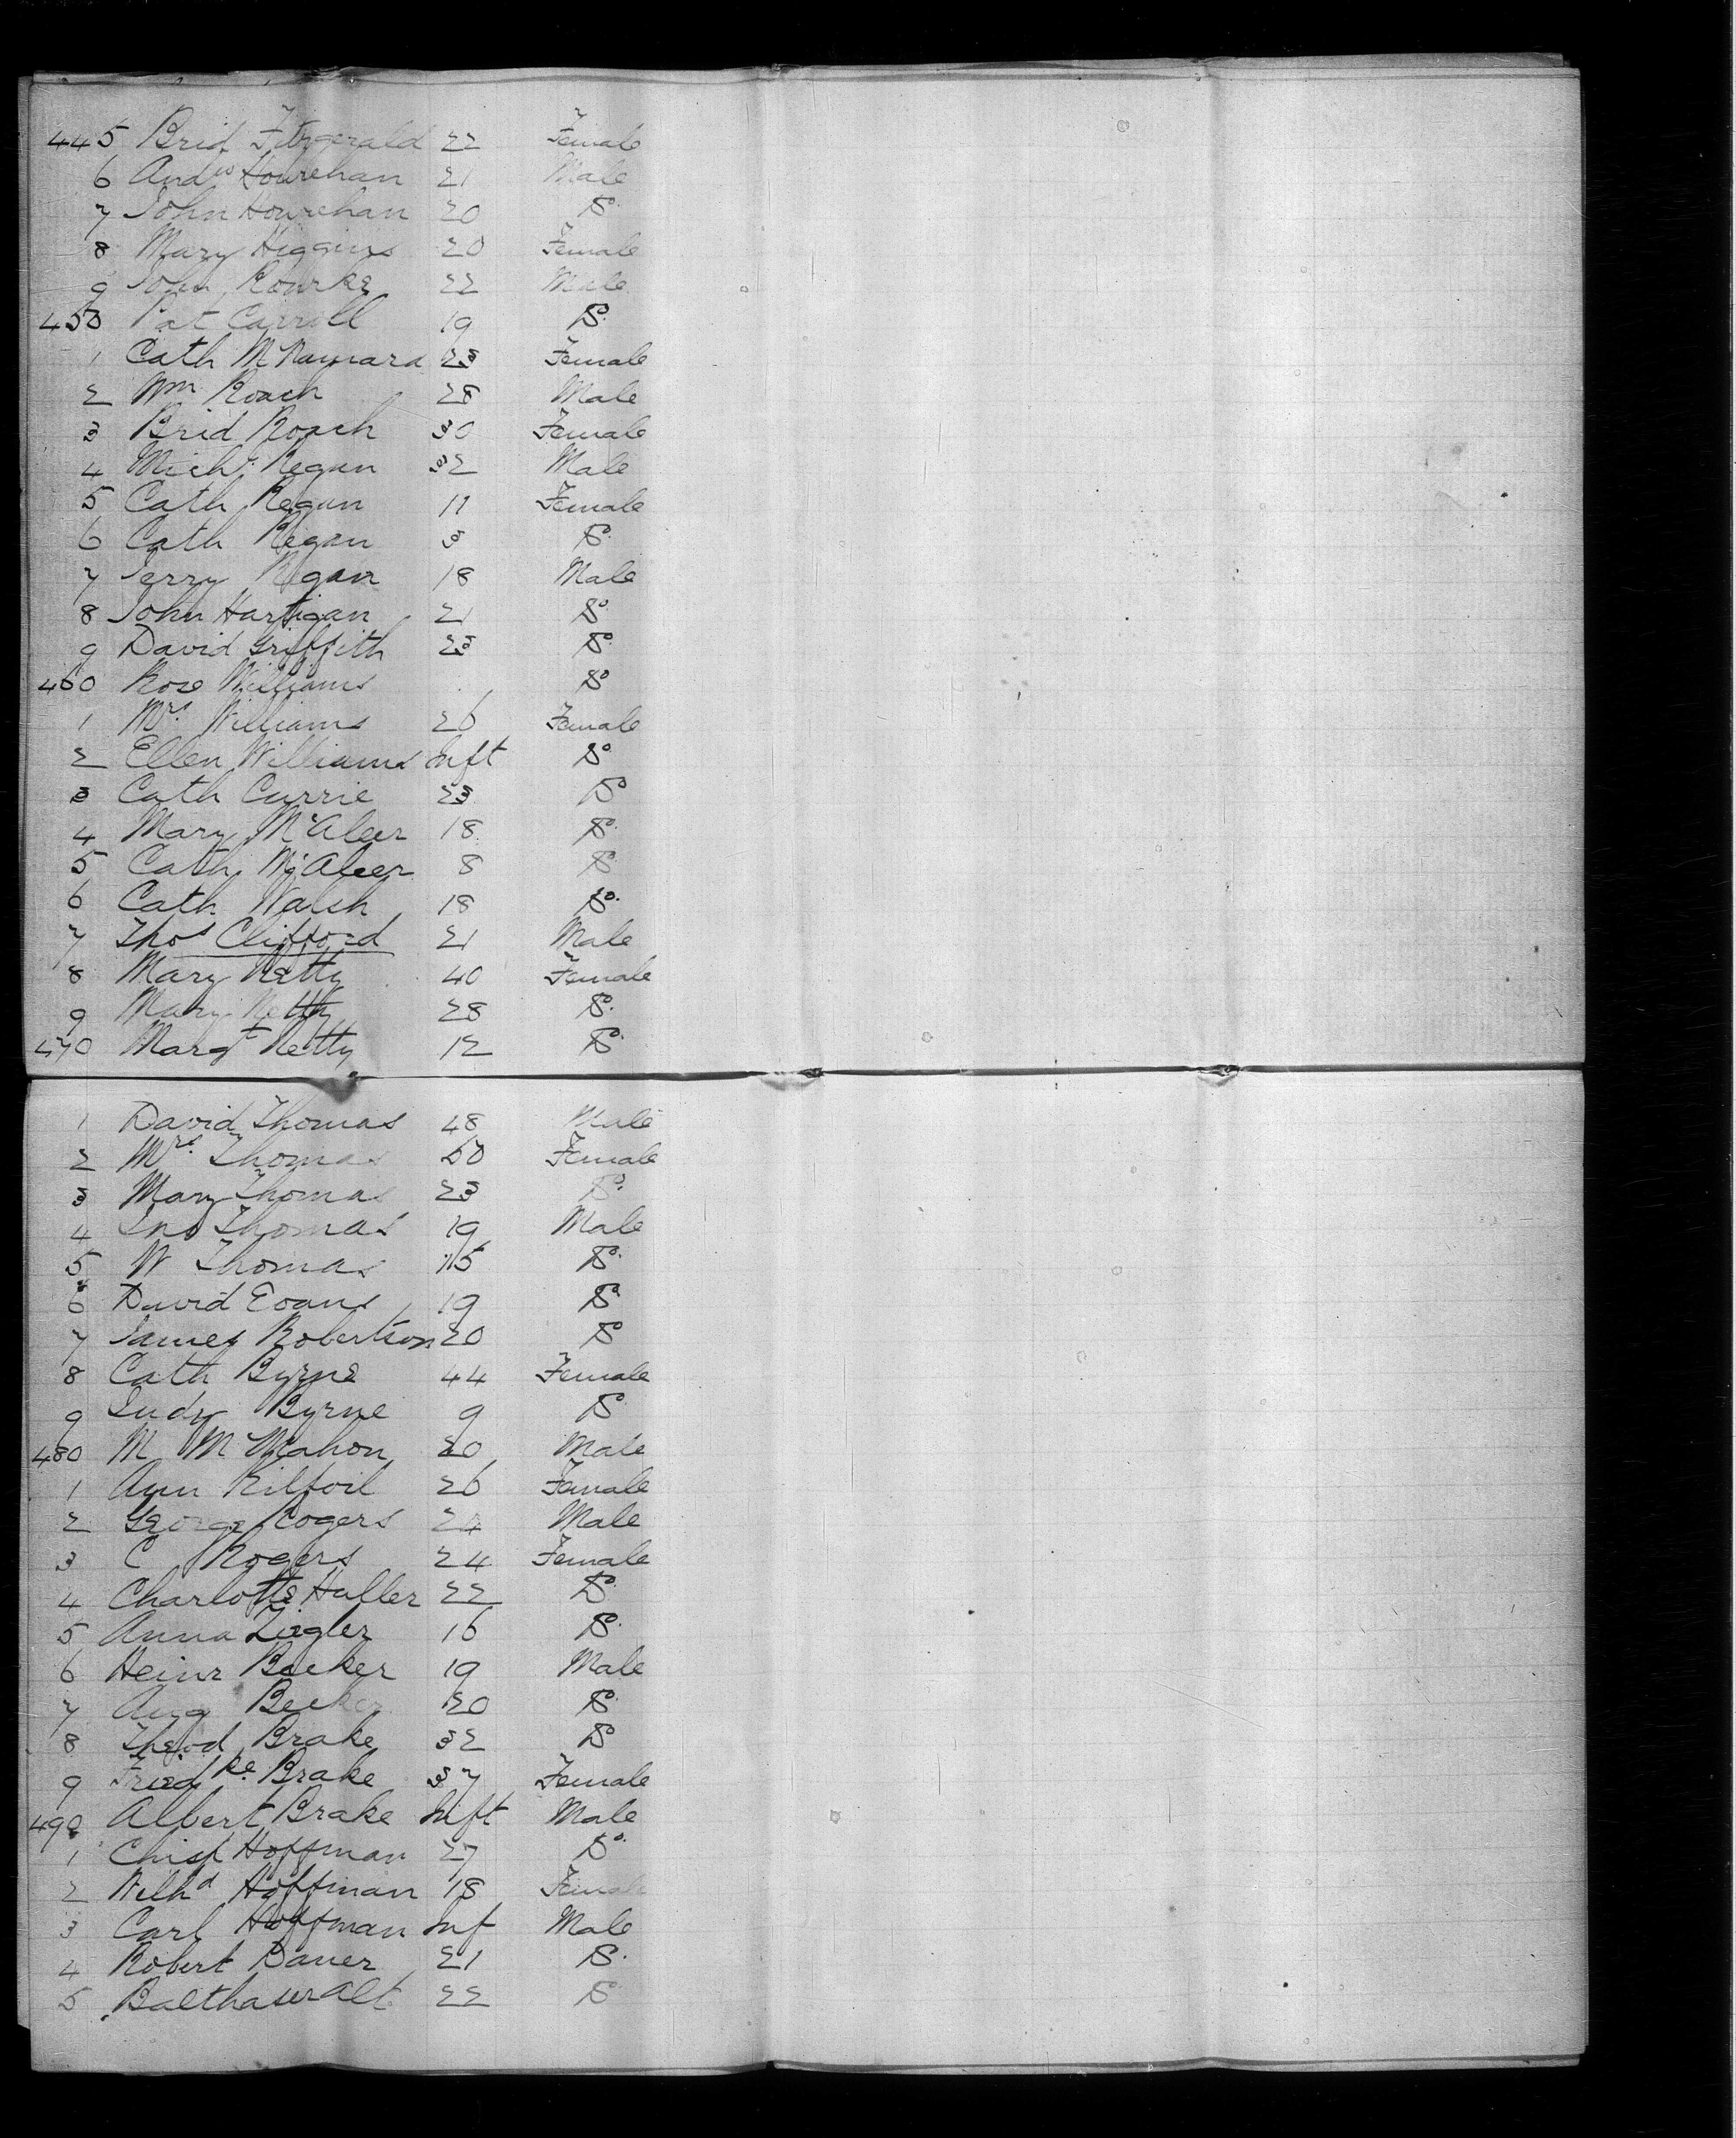 445 Brid Fitzgerald 22 Female
6 Andw Hourehan 21 Male
7 John Hourehan 20 Do
8 Mary Higgins 20 Female
9 John Rourke 22 Male
450 Pat Carroll 19 Do
1 Cath McNamara 23 Female
2 Wm Roach 28 Male
3 Brid Roach 30 Female
4 Michl Regan 32 Male
5 Cath Regan 11 Female
6 Cath Regan 3 Do
7 Jerry Regan 18 Male
8 John Hartigan 21 Do
9 David Griffith 23 Do
460 Rose Williams Do
1 Mrs. Williams 26 Female
2 Ellen Williams Inft Do
3 Cath Currie 23 Do
4 Mary McAleer 18 Do
5 Cath McAleer 8 Do
6 Cath Walsh 18 Do.
7 Thos Clifford 21 Male
8 Mary Netty 40 Female
9 Mary Netty 28 Do.
470 Margt Netty 12 Do
1 David Thomas 48 Male
2 Mrs. Thomas 50 Female
3 Mary Thomas 23 Do.
4 Jno Thomas 19 Male
5 W Thomas 15 Do.
6 David Evans 19 Do
7 James Robertson 20 Do
8 Cath Byrne 44 Female
9 Judy Byrne 9 Do
480 M McMahon 20 Male
1 Ann Kilfoil 26 Female
2 George Rogers 24 Male
3 C Rogers 24 Female
4 Charlotte Haller 22 Do.
5 Anna Ziegler 16 Do.
6 Heinr Becker 19 Male
7 Aug Becker 20 Do.
8 Theod Brake 32 Do
9 Friedke. Brake 37 Female
490 Albert Brake Inft Male
1 Christ Hoffman 27 Do.
2 Wilhd Hoffman 18 Female
3 Carl Hoffman Inf Male
4 Robert Dauer 21 Do.
5 Balthaser Alt 22 Do